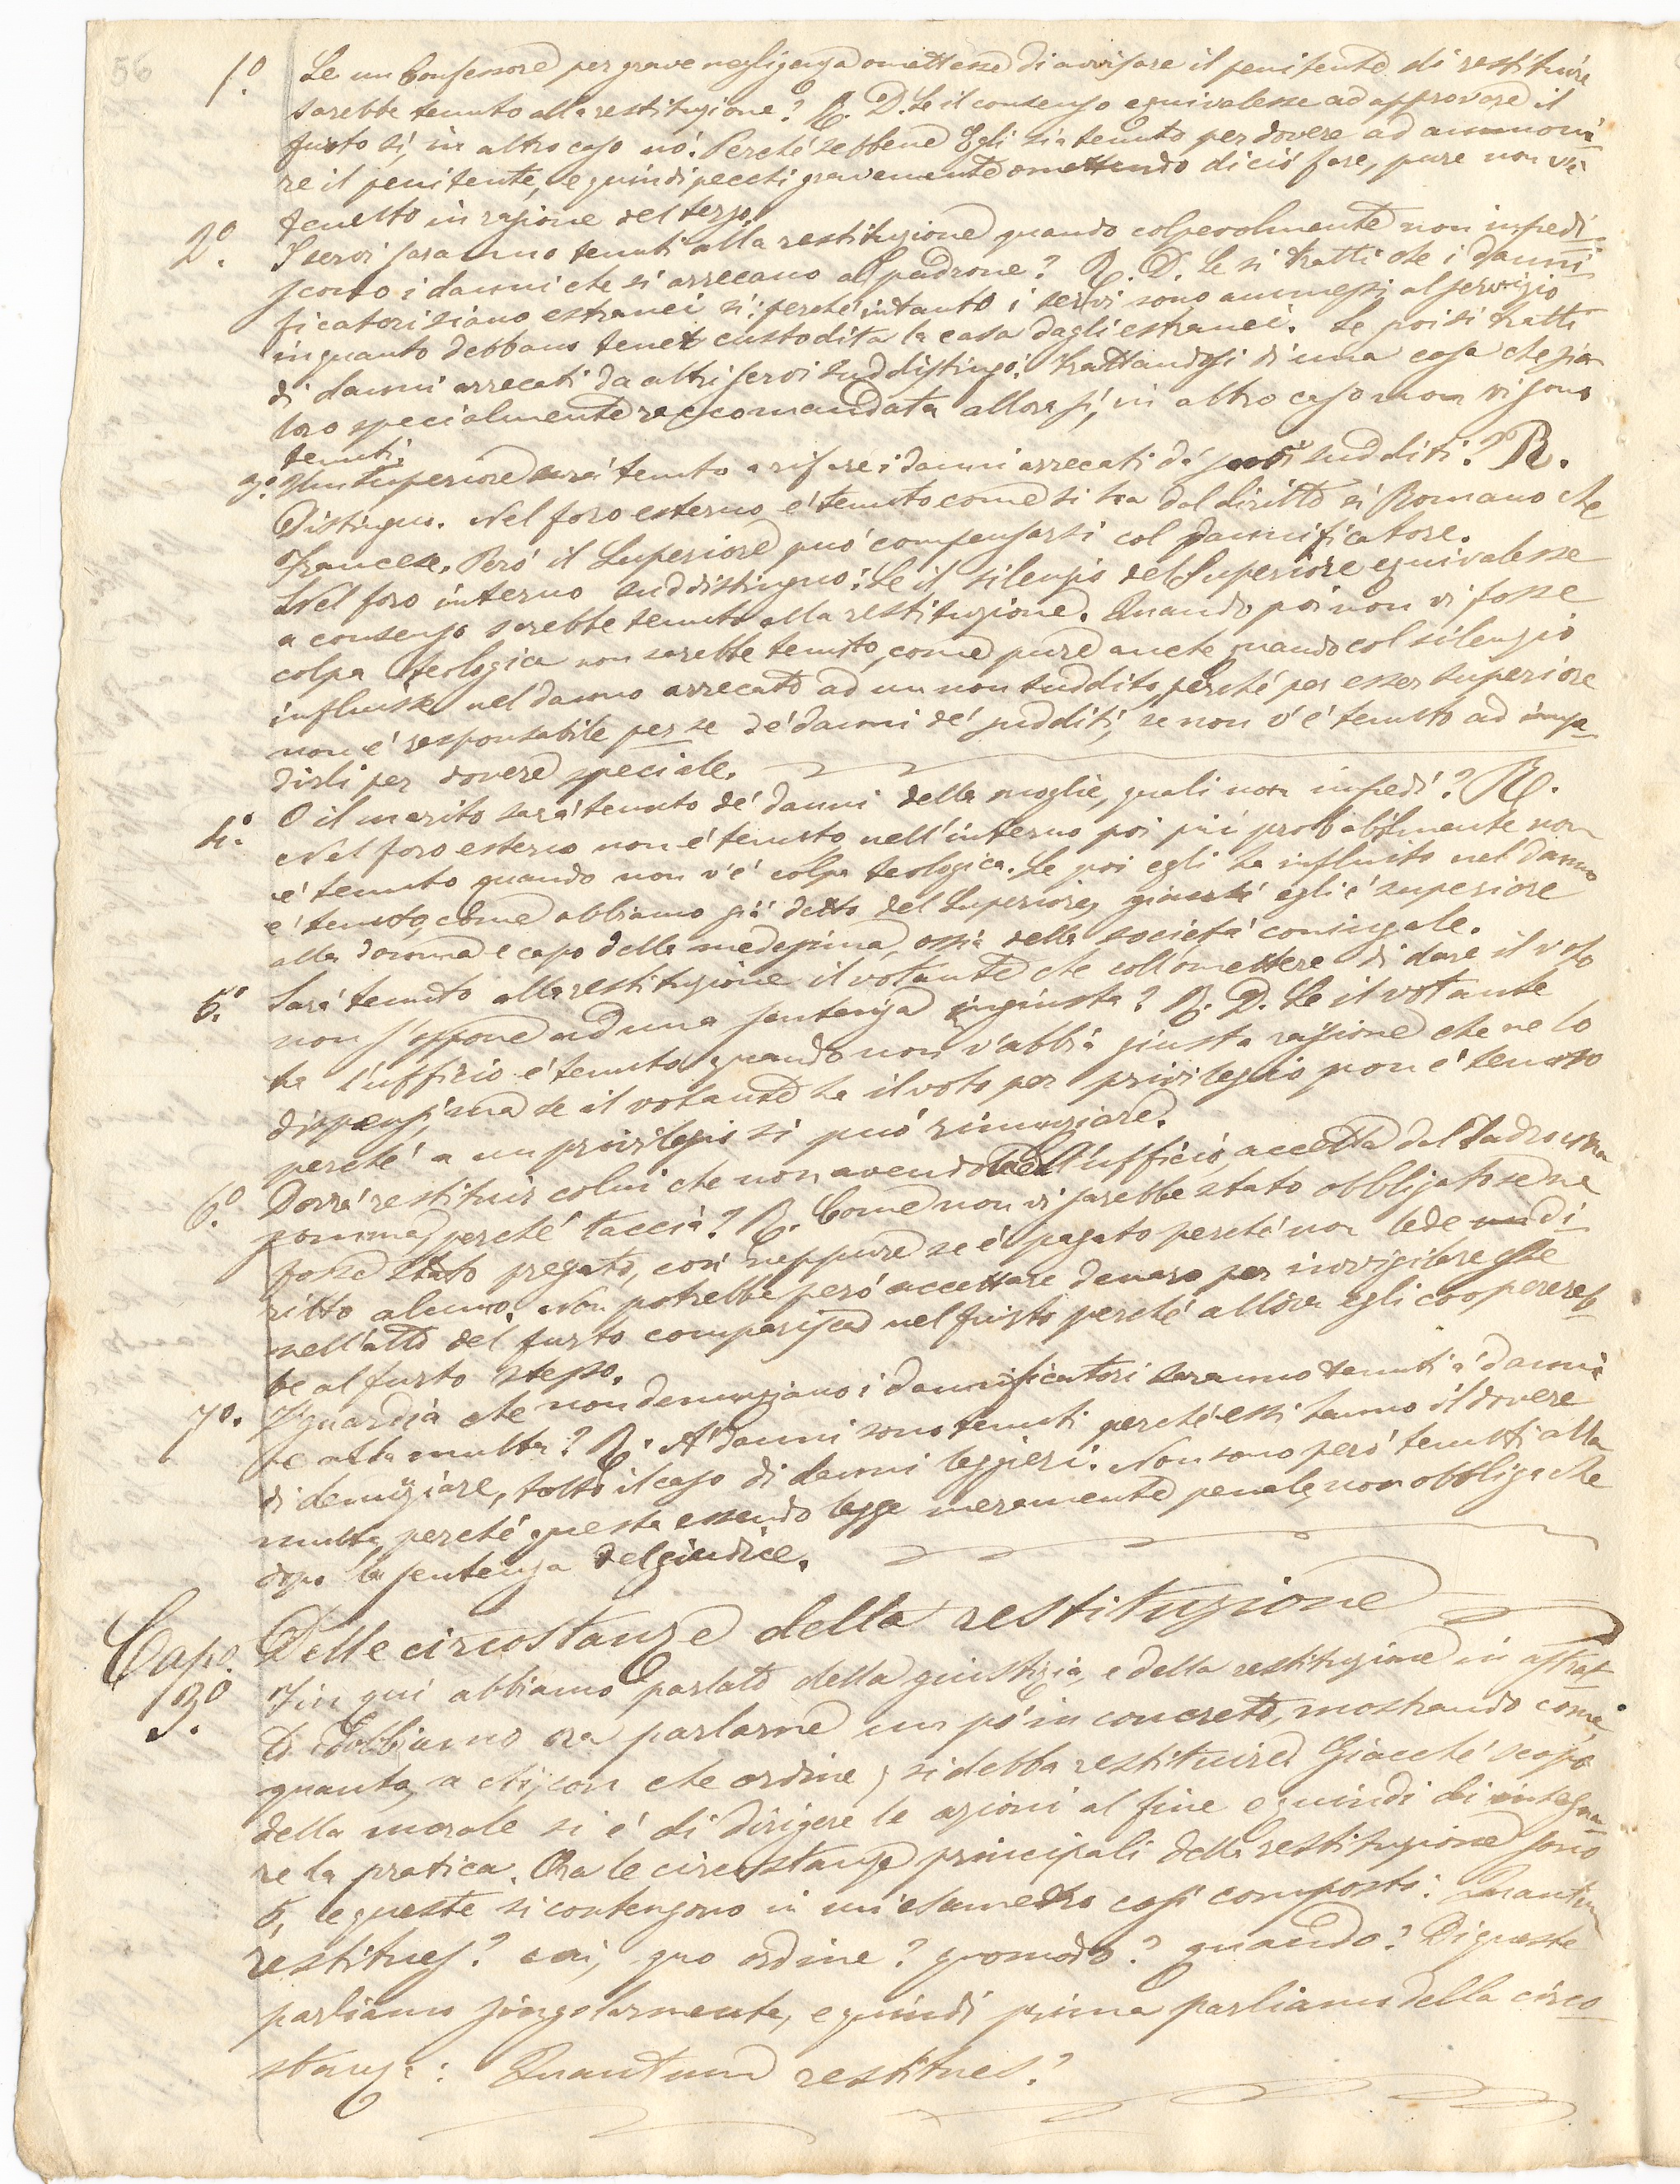 56
1.º Se un Confessore per grave negligenza omettesse di avvisare il penitente di restituire
sarebbe tenuto alla restituzione? R. D. Se il consenso equivalesse ad approvare il
furto sí, in altro caso nó. Perché sebbene Egli sia tenuto per dovere ad ammoni-
re il penitente, e quindi pecchi gravemente omettendo di ció fare, pure non vi è
tenuto in ragione del terzo.
2º. I servi saranno tenuti alla restituzione quando colpevolmente non impedi-
scono i danni che si arrecano al padrone? R. D. Se si tratti che i danni-
ficatori siano estranei sí: perché intanto i servi sono ammessi al servizio
in quanto debbano tener custodita la casa dagli estranei. Se poi si tratti
di danni arrecati da altri servi suddistinguo: trattandosi di una cosa che sia
loro specialmente raccomandata allora sí, in altro caso non vi sono
tenuti.
3º. Un Superiore sará tenuto a rifare i danni arrecati da' suoi sudditi? R.
Distinguo. Nel foro esterno é tenuto come si ha dal diritto sí Romano che
Francese. Peró il Superiore puó compensarsi col dannificatore.
Nel foro interno suddistinguo: Se il silenzio del Superiore equivalesse
a consenso sarebbe tenuto alla restituzione. Quando poi non vi fosse
colpa teologica non sarebbe tenuto, come pure anche quando col silenzio
influisse nel danno arrecato ad un non suddito, perché per esser superiore
non é responsabile per se de' danni de' sudditi, se non v'é tenuto ad impe-
dirli per dovere speciale.
4º. O il marito sará tenuto de' danni della moglie, quali non impedí? R.
Nel foro esterno non é tenuto, nell'interno poi piú probabilmente non
é tenuto quando non v'é colpa teologica. Se poi egli ha influito nel danno
é tenuto, come abbiamo giá detto del Superiore, giacché egli é superiore
alla donna e capo della medesima, ossia della societá coniugale.
5º. Sará tenuto alla restituzione il votante che coll'omettere di dare il voto
non s'oppone ad una sentenza ingiusta? R. D. Se il votante
ha l'ufficio é tenuto quando non v'abbia giusta ragione che ne lo
dispensi, ma se il votante ha il voto per privilegio non é tenuto
perché a un privilegio si puó rinunziare.
6º. Dovrá restituir colui che non avendo dell'ufficio, accetta dal ladro una
somma, perché taccia? R. Come non vi sarebbe stato obbligato se ne
fosse stato pregato, cosí neppure se é pagato perché non lede un di-
ritto alcuno. Non potrebbe peró accettare denaro per invigilare che
nell'atto del furto comparisca nel furto perché allora egli cooperereb-
be al furto stesso.
7º. I guardia che non denunziano i dannificatori saranno tenuti a' danni
e alla multa? R. A' danni sono tenuti perché essi hanno il dovere
di denunziare, tolto il caso di danni leggieri. Non sono peró tenuti alla
multa, perché questa essendo legge meramente penale, non obbliga che
dopo la sentenza del giudice.
Capo. 3º. Delle circostanze della restituzione
Fin qui abbiamo parlato della giustizia, e della restituzione in astrat-
to. Dobbiamo ora parlarne un pó in concreto, mostrando come,
quanto, a chi, con che ordine, si debba restituire. Giacché scopo
della morale si é di dirigere le azioni al fine e quindi di insegna-
re la pratica. Ora le circostanze principali della restituzione sono
5, e queste si contengono in un esametro cosí composto: Quantum
restitues? cui, quo ordine? quomodo? quando? Di queste
parliamo singolarmente, e quindi prima parliamo della circo-
stanza: Quantum restitues?